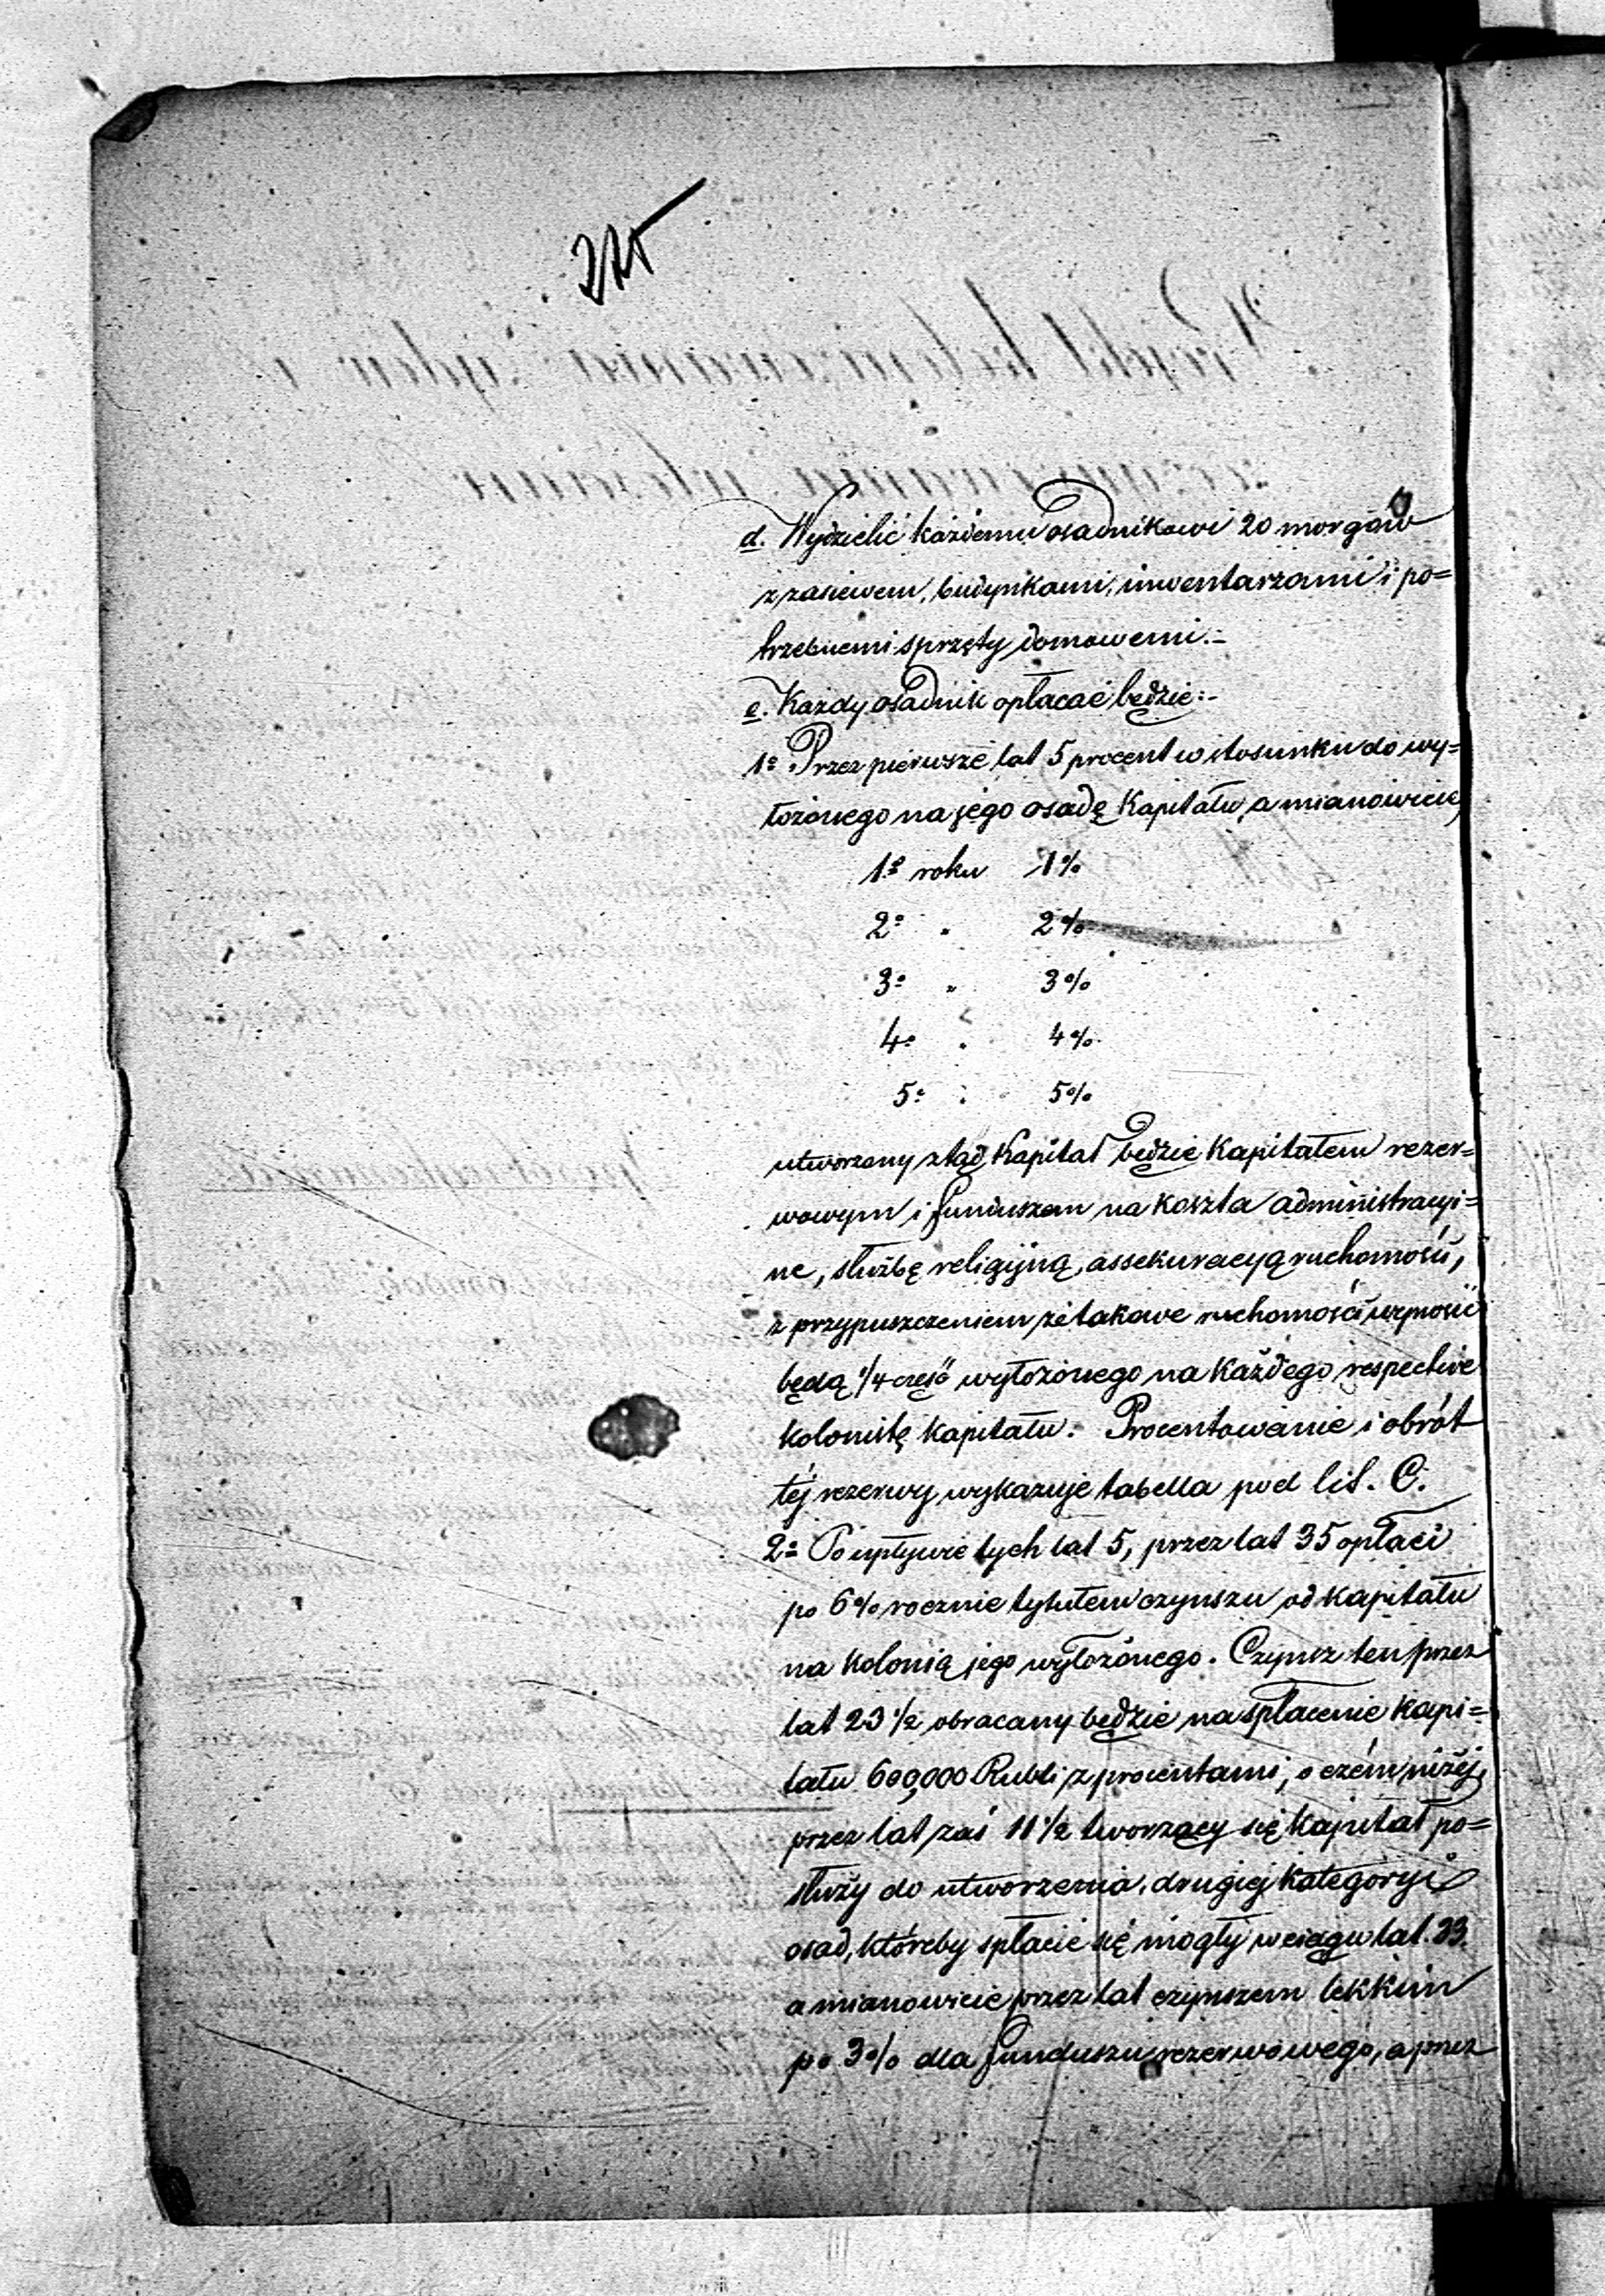 d. Wydzielić każdemu osadnikowi 20 morgów
z zasiewem, budynkami, inwentarzami i po=
trzebnemi sprzęty domowemi.=
e. Każdy osadnik opłacać będzie:-
1º Przez pierwsze lat 5 procent w stosunku do wy=
łożonego na jego osadę Kapitału, a mianowicie,
1º roku 1%
2º " 2%
3º " 3%
4º " 4%
5º " 5%
utworzony ztąd Kapitał będzie Kapitałem rezer=
wowym i funduszem na koszta administracyi=
ne, służbę religijną, assekuracyą ruchomości,
z przypuszczeniem że takowe ruchomości wynosić
będą 1/4 część wyłożonego na każdego respective
kolonistę kapitału. Procentowanie i obrót
téj rezerwy wykazuje tabella pod lit. C.
2º Po upływie tych lat 5, przez lat 35 opłaci
po 6% rocznie tytułem czynszu od kapitału
na kolonią jego wyłożonego. Czynsz ten przez
lat 23 1/2 obracany będzie na spłacenie Kapi=
tału 600,000 Rubli z procentami, o czém niżéj,
przez lat zaś 11 1/2 tworzący się Kapitał po=
służy do utworzenia drugiej Kategoryi
osad, któreby spłacić się mogły w ciągu lat 33.
a mianowicie przez lat czynszem lekkim
po 3% dla funduszu rezerwowego, a przez